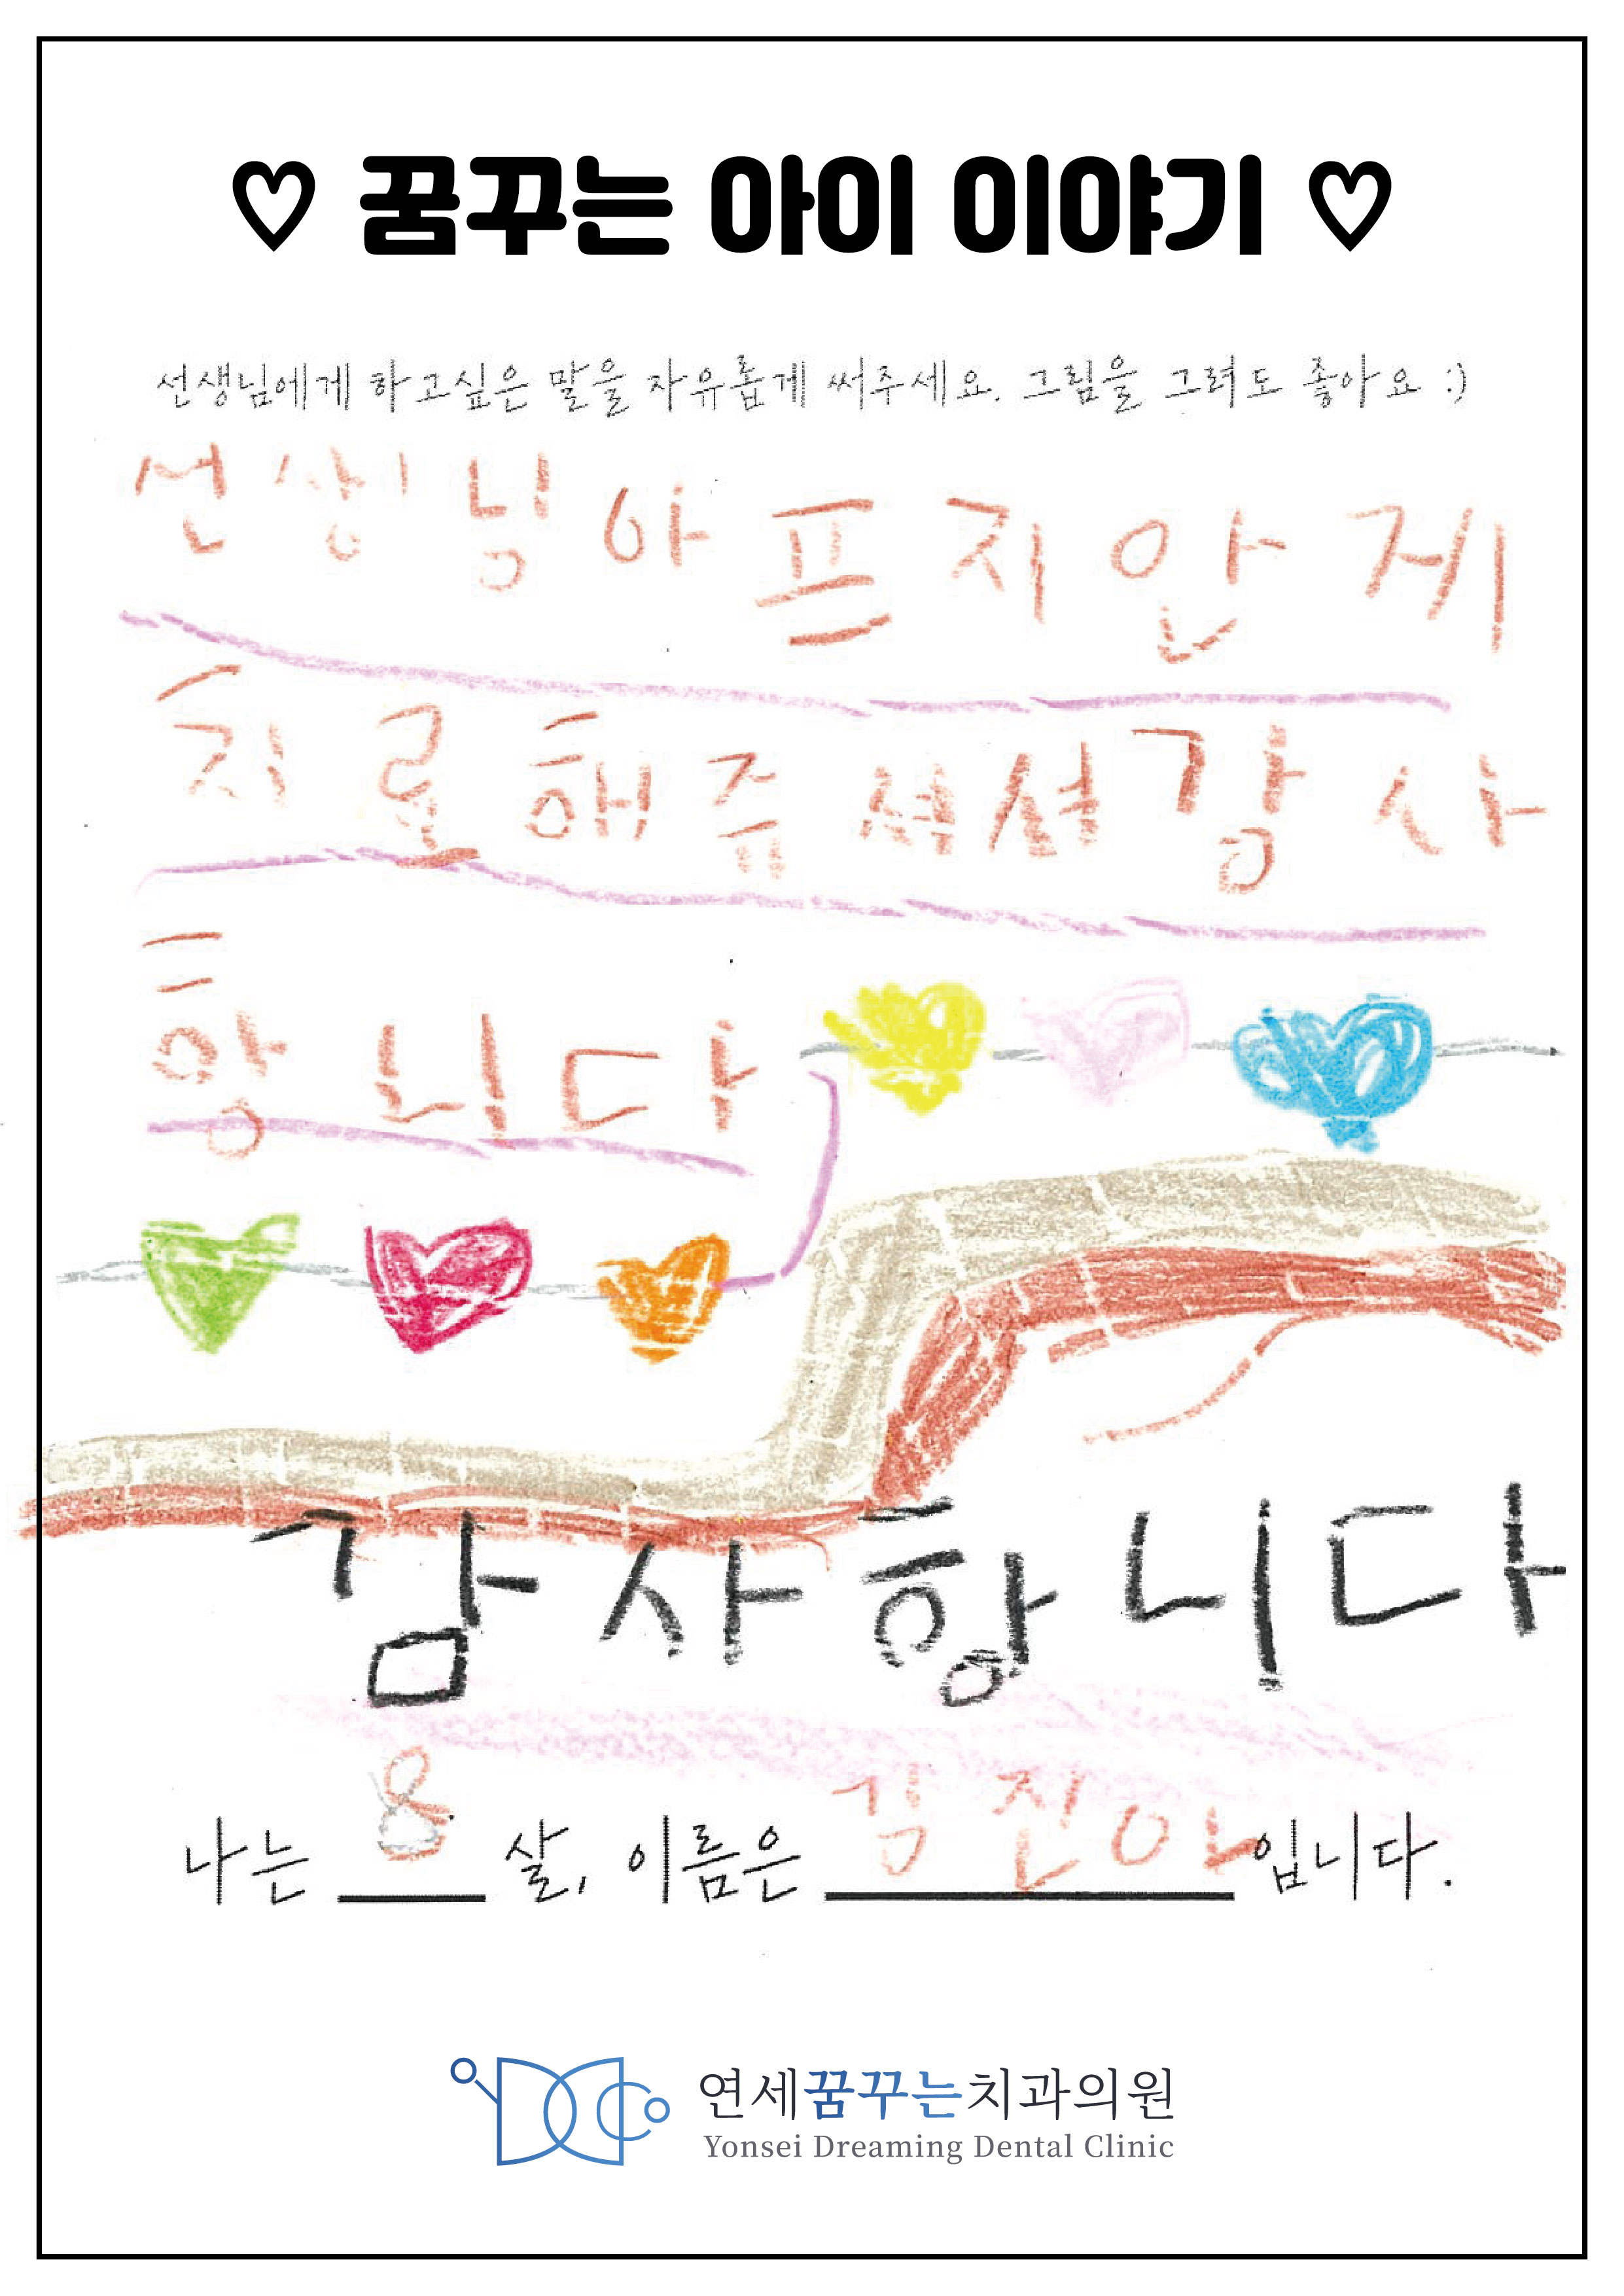 ♡ 꿈꾸는 아이 이야기 ♡
선생님에게 하고싶은 말을 자유롭게 써주세요. 그림을 그려도 좋아요 :)
선상님 아프지안게
치로해쥬셔셔감사
항니다
감사항니다
나는 8 살, 이름은 김진아입니다.
연세꿈꾸는치과의원
Yonsei Dreaming Dental Clinic